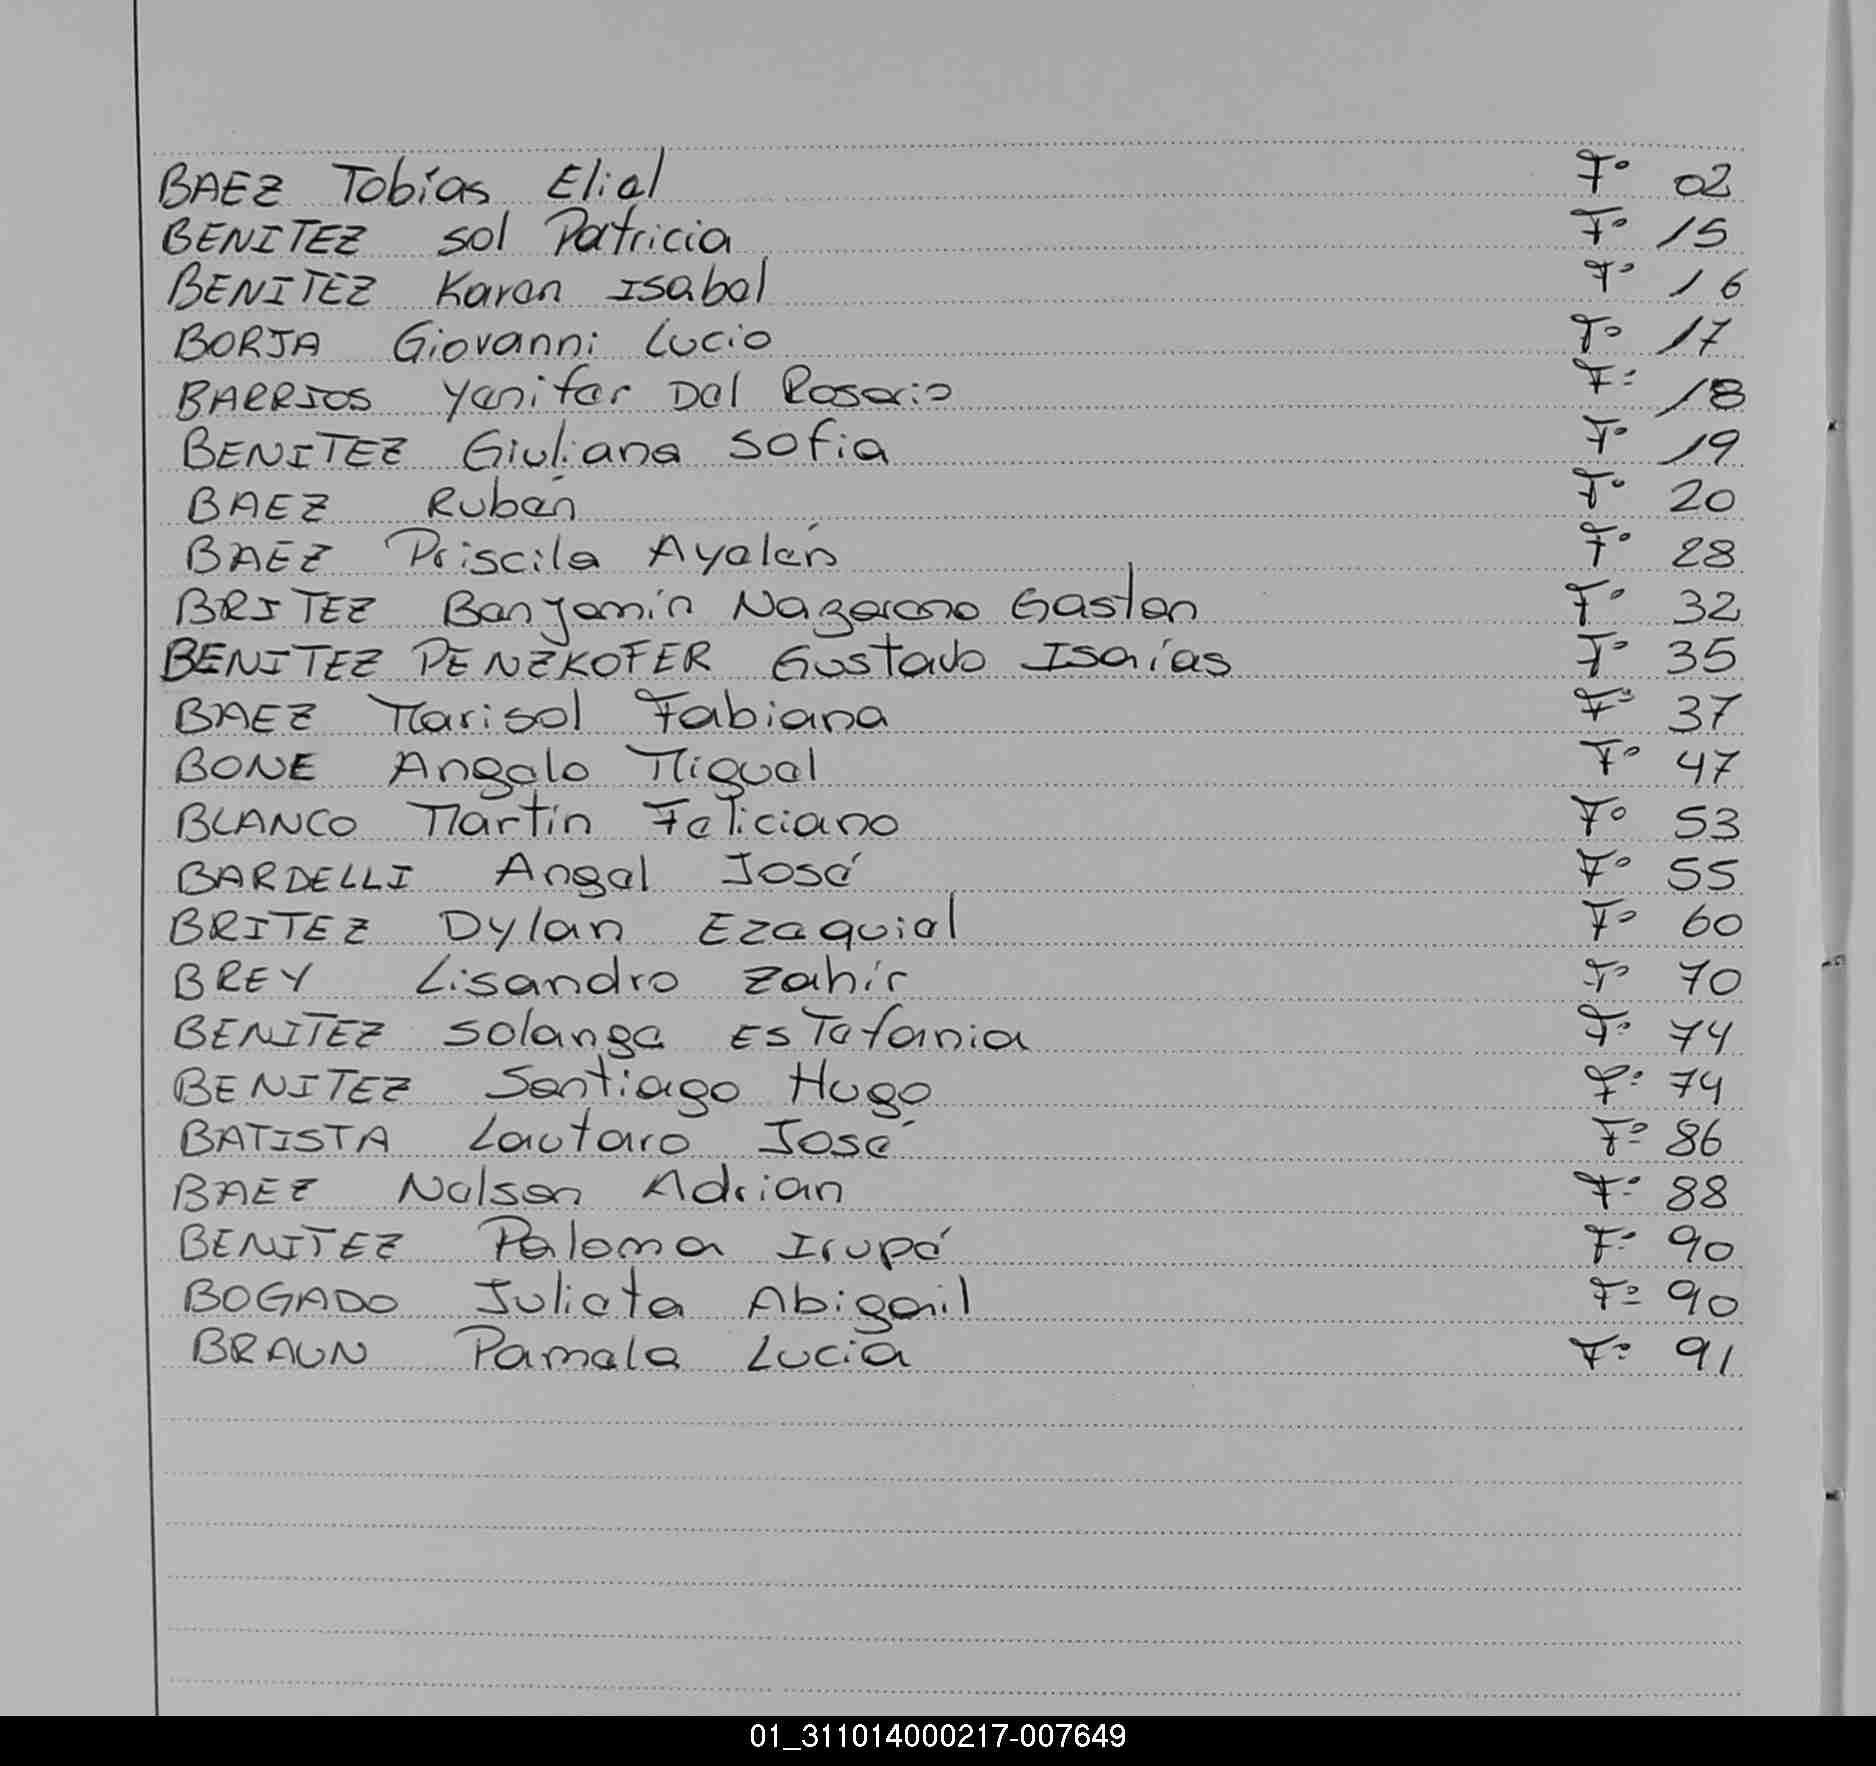 BAEZ Tobías Eliel F° 02
BENITEZ Sol Patricia F° 15
BENITEZ Karen Isabel F° 16
BORJA Giovanni Lucio F° 17
BARRIOS Yenifer Del Rosario F° 18
BENITEZ Giuliana Sofia F° 19
BAEZ Rubén F° 20
BAEZ Priscila Ayelén F° 28
BRITEZ Benjamín Nazareno Gaston F° 32
BENITEZ PENZKOFER Gustavo Isaías F° 35
BAEZ Marisol Fabiana F° 37
BONE Angelo Miguel F° 47
BLANCO Martín Feliciano F° 53
BARDELLI Angel José F° 55
BRITEZ Dylan Ezequiel F° 60
BREY Lisandro Zahír F° 70
BENITEZ Solange Estefania F° 74
BENITEZ Santiago Hugo F° 74
BATISTA Lautaro José F° 86
BAEZ Nelson Adrian F° 88
BENITEZ Paloma Irupé F° 90
BOGADO Julieta Abigail F° 90
BRAUN Pamela Lucia F° 91
01_311014000217-007649